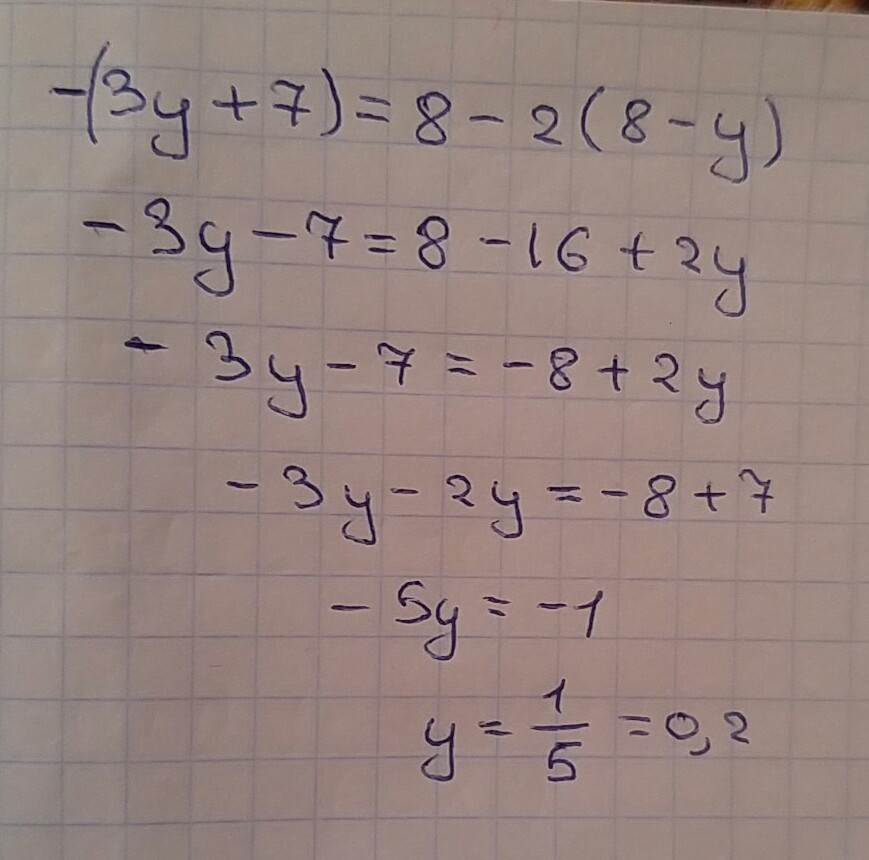 -(3y+7)=8-2(8-y)
-3y-7=8-16+2y
-3y-7=-8+2y
-3y-2y=-8+7
-5y=-1
y=1/5=0,2